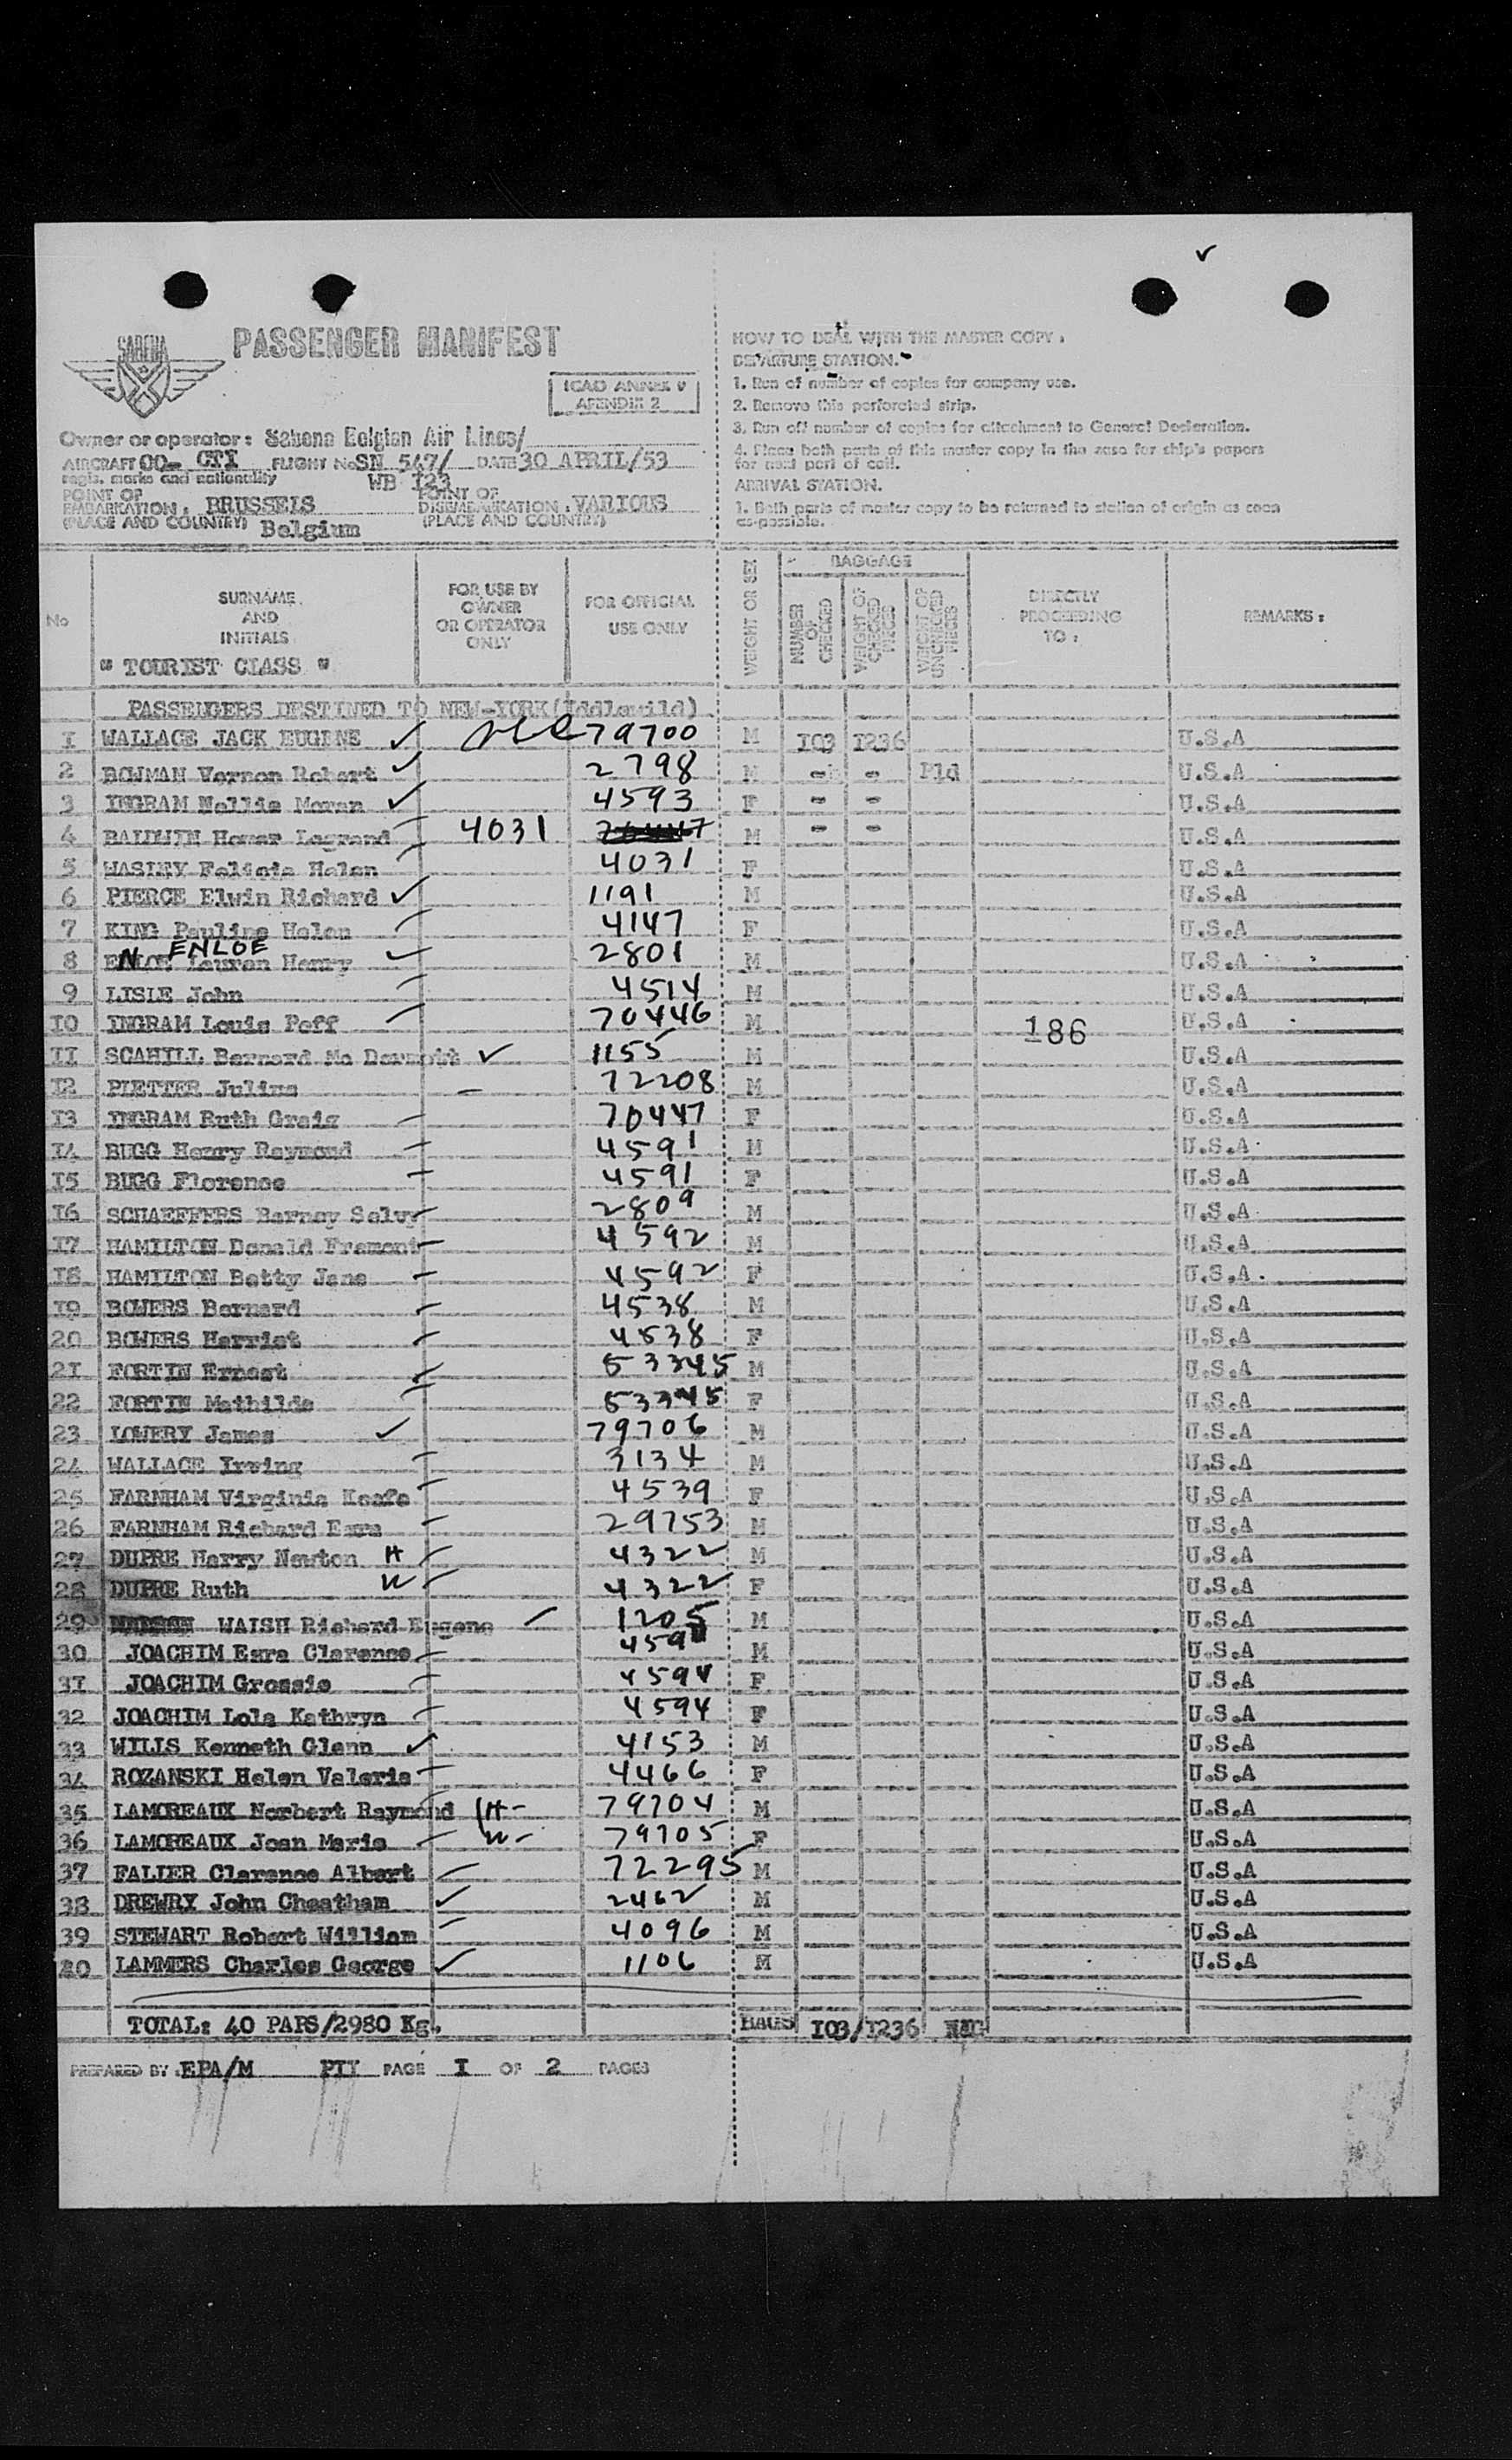 SABENA
PASSENGER MANIFEST
ICAO ANNEX 9
APENDIX 2
Owner or operator: Sabena Belgian Air Lines/
AIRCRAFT OO- CTI FLIGHT No SN 547/ DATE 30 APRIL/53
regis. marks and nationality WB 123
POINT OF EMBARKATION: BRUSSELS
(PLACE AND COUNTRY) Belgium
POINT OF DISEMBARKATION: VARIOUS
(PLACE AND COUNTRY)
HOW TO DEAL WITH THE MASTER COPY:
DEPARTURE STATION.
1. Run of number of copies for company use.
2. Remove this perforated strip.
3. Run off number of copies for attachment to General Declaration.
4. Place both parts of this master copy in the case for ship's papers
for next port of call.
ARRIVAL STATION.
1. Both parts of master copy to be returned to station of origin as soon
as possible.
No
SURNAME AND INITIALS
" TOURIST CLASS "
FOR USE BY OWNER OR OPERATOR ONLY
FOR OFFICIAL USE ONLY
WEIGHT OR SEX
BAGGAGE
NUMBER OF CHECKED
WEIGHT OF CHECKED PIECES
WEIGHT OF UNCHECKED PIECES
DIRECTLY PROCEEDING TO:
REMARKS:
PASSENGERS DESTINED TO NEW-YORK(Iddlewild)
I WALLACE JACK EUGENE ✓ 79700 M I03 I236 U.S.A
2 BOWMAN Vernon Robert ✓ 2798 M - - Pld U.S.A
3 INGRAM Nellie Moran ✓ 4593 F - - U.S.A
4 BALDWIN Homer Legrand 4031 M - - U.S.A
5 WASLEY Felicia Helen 4031 F U.S.A
6 PIERCE Elwin Richard ✓ 1191 M U.S.A
7 KING Pauline Helen 4147 F U.S.A
8 ENLOE Lauren Henry ENLOE 2801 M U.S.A
9 LISLE John 4514 M U.S.A
I0 INGRAM Louis Peff 70446 M 186 U.S.A
II SCAHILL Bernard Mc Dermott ✓ 1155 M U.S.A
I2 PLETTER Julius 72208 M U.S.A
I3 INGRAM Ruth Graig 70447 F U.S.A
I4 BUGG Henry Raymond 4591 M U.S.A
I5 BUGG Florence 4591 F U.S.A
I6 SCHAEFFERS Barney Selvy 2809 M U.S.A
I7 HAMILTON Donald Fremont 4592 M U.S.A
I8 HAMILTON Betty Jane 4592 F U.S.A
I9 BOWERS Bernard 4538 M U.S.A
20 BOWERS Harriet 4538 F U.S.A
2I FORTIN Ernest 53345 M U.S.A
22 FORTIN Mathilde 53345 F U.S.A
23 LOWERY James ✓ 79706 M U.S.A
24 WALLACE Irving 3134 M U.S.A
25 FARNHAM Virginia Keafe 4539 F U.S.A
26 FARNHAM Richard Esra 29753 M U.S.A
27 DUPRE Harry Newton H 4322 M U.S.A
28 DUPRE Ruth W 4322 F U.S.A
29 WALSH Richard Eugene 1205 M U.S.A
30 JOACHIM Esra Clarence 4594 M U.S.A
3I JOACHIM Grossie 4594 F U.S.A
32 JOACHIM Lola Kathryn 4594 F U.S.A
33 WILLS Kenneth Glenn ✓ 4153 M U.S.A
34 ROZANSKI Helen Valerie 4466 F U.S.A
35 LAMOREAUX Norbert Raymond (H- 79704 M U.S.A
36 LAMOREAUX Joan Marie W- 79705 F U.S.A
37 FALIER Clarence Albert 72295 M U.S.A
38 DREWRY John Cheatham ✓ 2462 M U.S.A
39 STEWART Robert William 4096 M U.S.A
40 LAMMERS Charles George ✓ 1106 M U.S.A
TOTAL: 40 PAPS/2980 Kg. BAGS I03/I236
PREPARED BY: EPA/M PTY PAGE I OF 2 PAGES